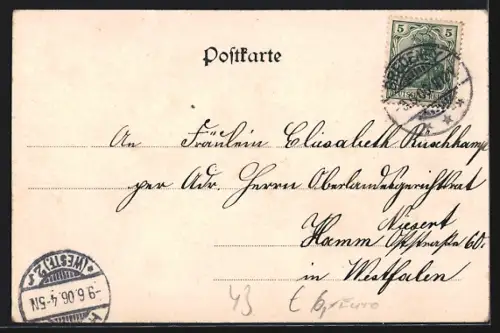 Postkarte
5 5
BREDENEY
An Fräulein Elisabeth Ruschkamp
per Adr. Herrn Oberlandesgerichtsrat
Niesert
Hamm Oststraße 60.
in Westfalen
(WESTF.)
-9.6.06.4-5N
43
Euro